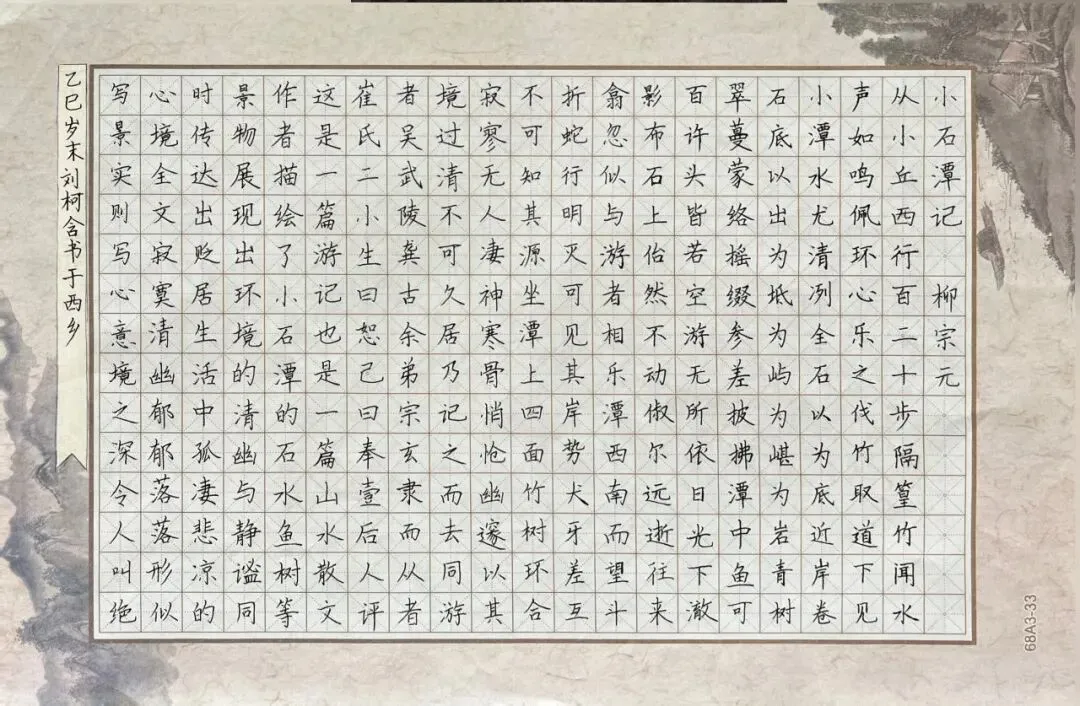 小石潭记 柳宗元
从小丘西行百二十步隔篁竹闻水
声如鸣佩环心乐之伐竹取道下见
小潭水尤清冽全石以为底近岸卷
石底以出为坻为屿为嵁为岩青树
翠蔓蒙络摇缀参差披拂潭中鱼可
百许头皆若空游无所依日光下澈
影布石上佁然不动俶尔远逝往来
翕忽似与游者相乐潭西南而望斗
折蛇行明灭可见其岸势犬牙差互
不可知其源坐潭上四面竹树环合
寂寥无人凄神寒骨悄怆幽邃以其
境过清不可久居乃记之而去同游
者吴武陵龚古余弟宗玄隶而从者
崔氏二小生曰恕己曰奉壹后人评
这是一篇游记也是一篇山水散文
作者描绘了小石潭的石水鱼树等
景物展现出环境的清幽与静谧同
时传达出贬居生活中孤凄悲凉的
心境全文寂寞清幽郁郁落落形似
写景实则写心意境之深令人叫绝
乙巳岁末刘柯含书于西乡
68A3-33